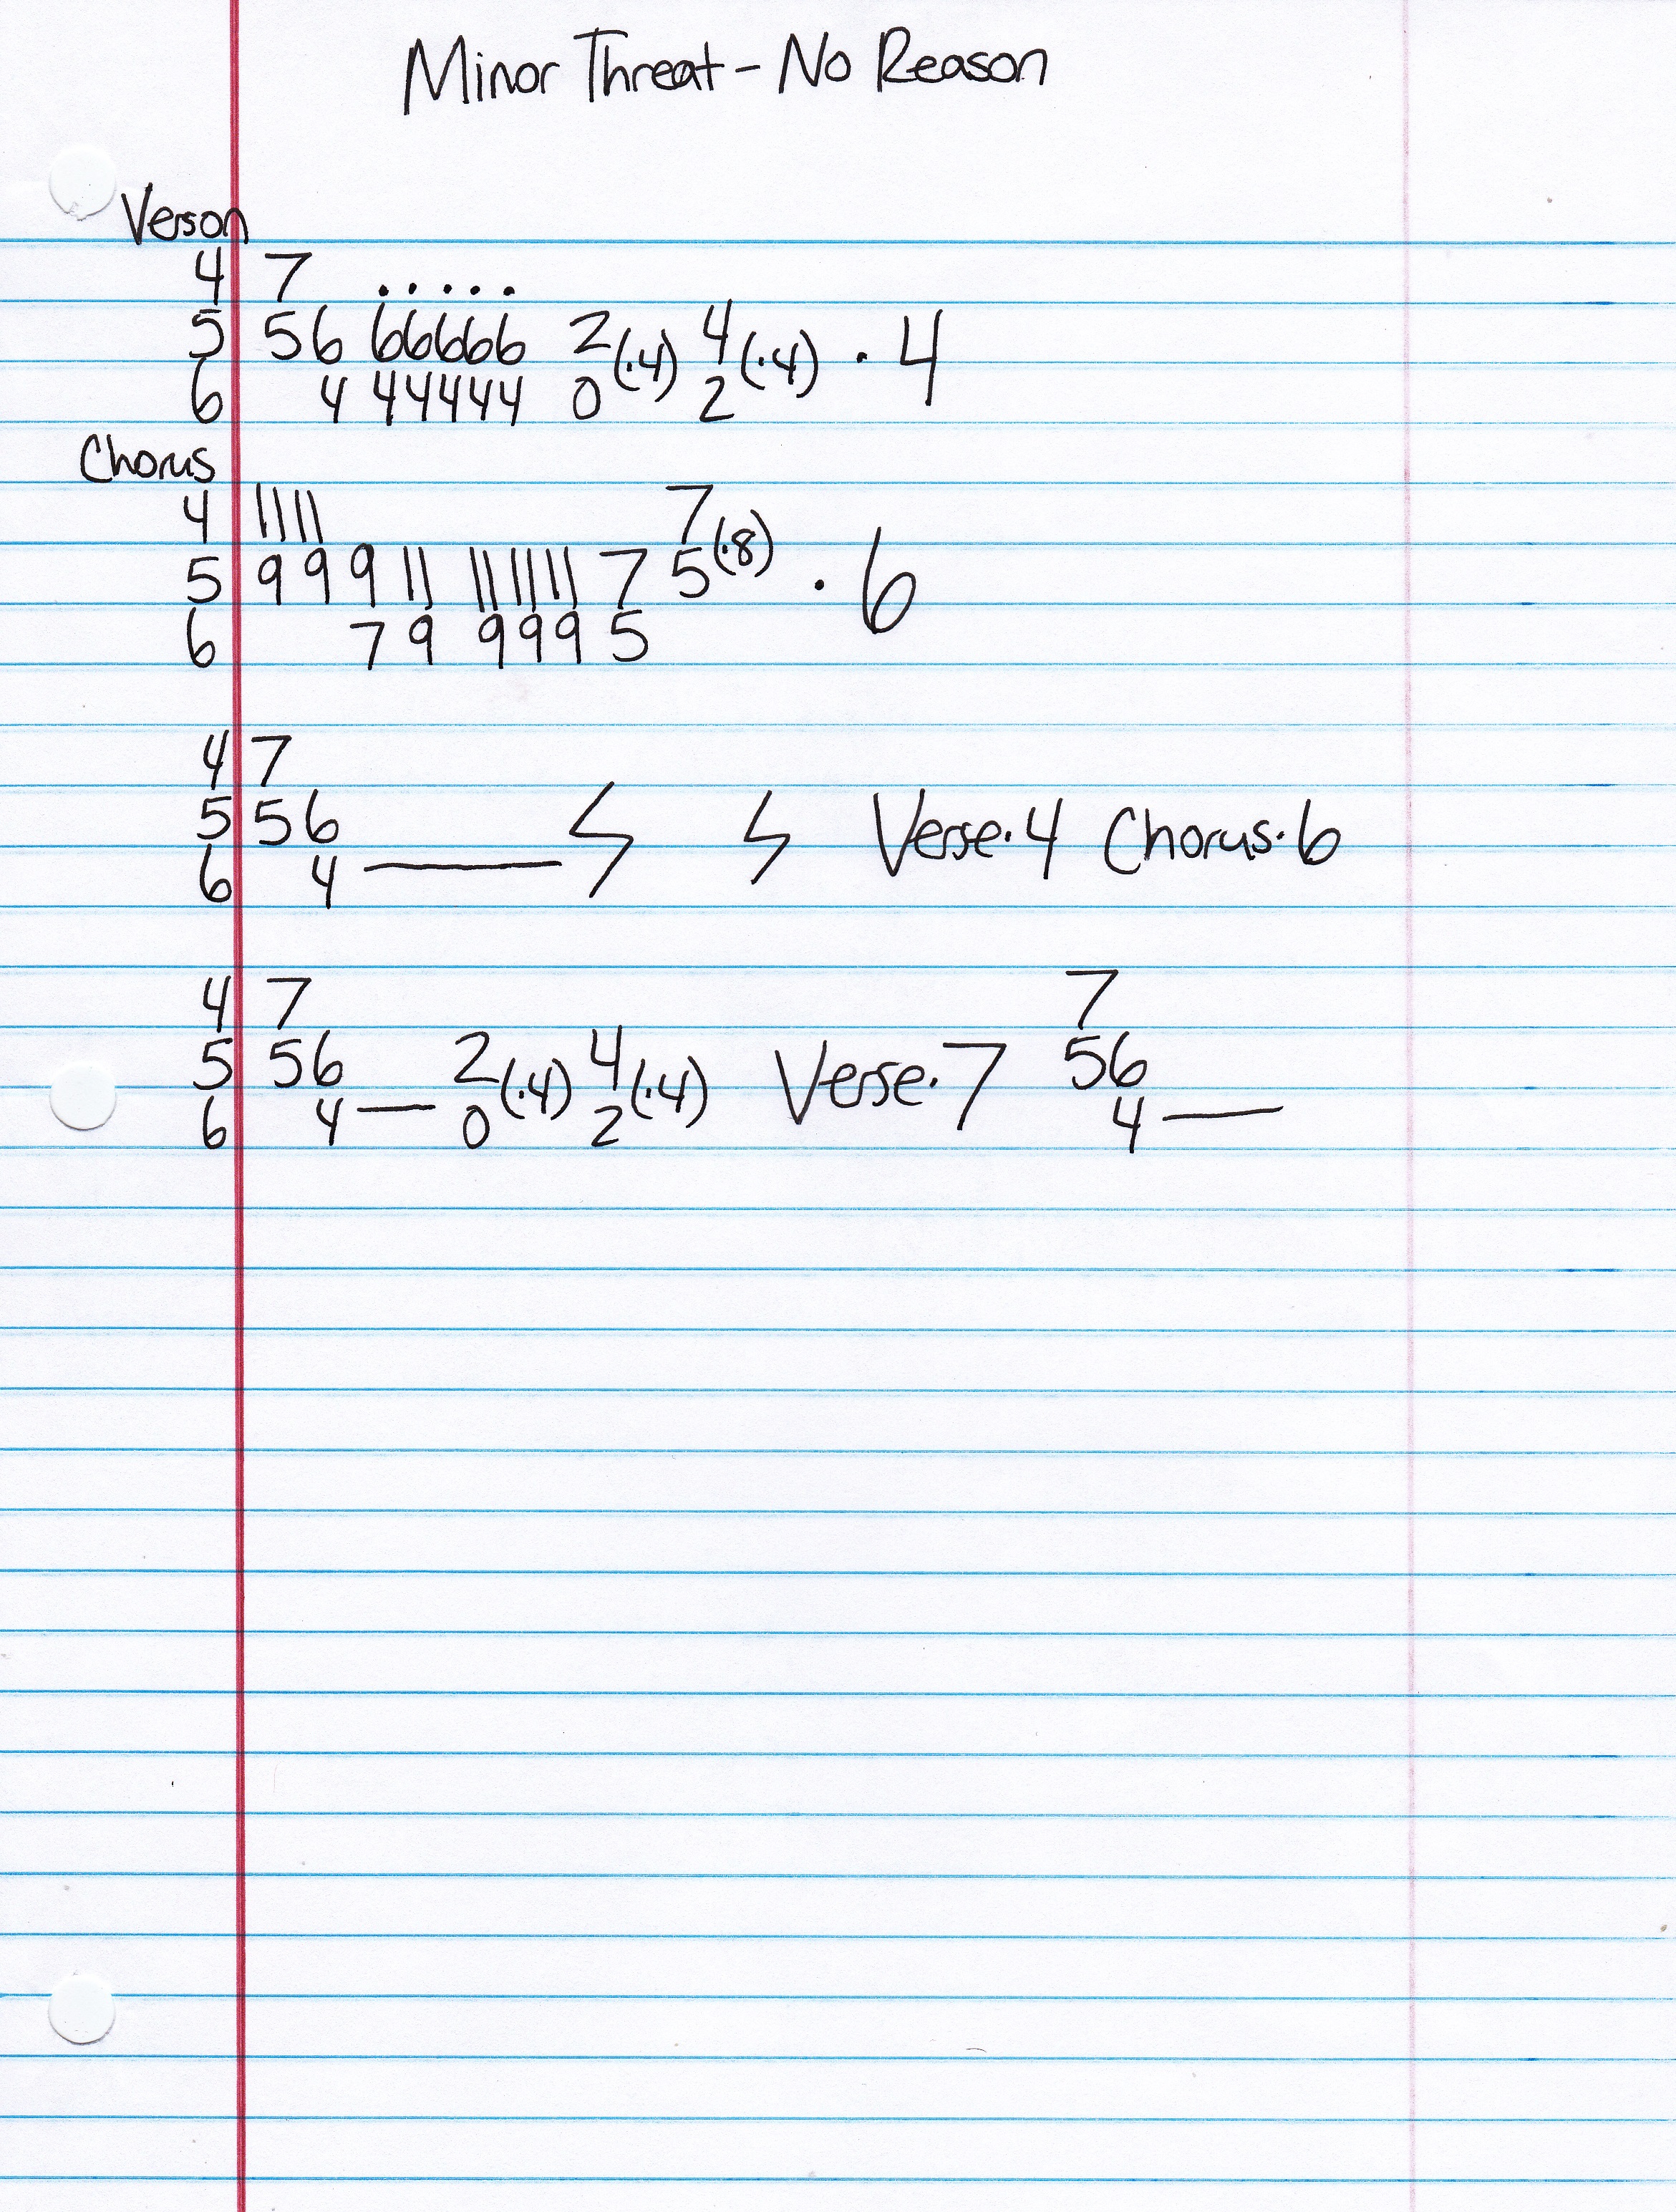 Minor Threat - No Reason
Verson
4 7 . . . . .
5 56 66666 2 (·4) 4 (·4) · 4
6 4 44444 0 2
Chorus
4 11 11 7
5 9 9 9 11 11 11 11 7 5 (·8) · 6
6 7 9 9 9 9 5
4 7
5 56 Verse·4 Chorus·6
6 4 —
4 7 7
5 56 2 (·4) 4 (·4) Verse·7 56
6 4 — 0 2 4 —